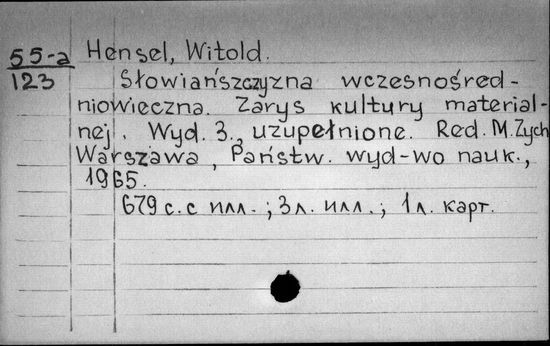 55-a Hensel, Witold.
123 Słowiańszczyzna wczesnośred-
niowieczna. Zarys kultury material-
nej. Wyd. 3., uzupełnione. Red. M. Zych
Warszawa, Państw. wyd-wo nauk.,
1965.
679 с. с илл. ; 3 л. илл. ; 1 л. карт.